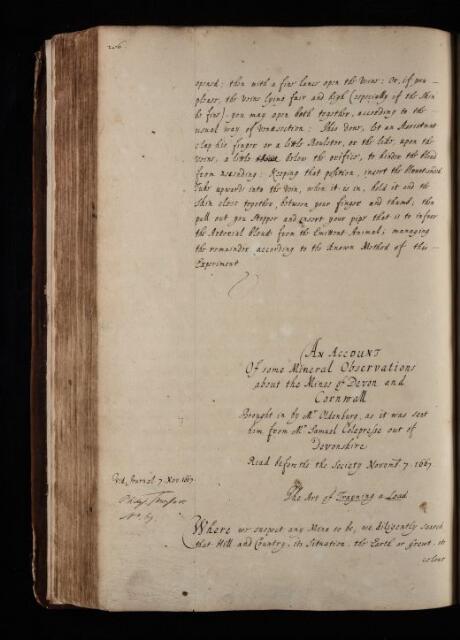 206
opened: then with a fine lance open the Veins: Or, if you
please, the veins lying fair and high (especially if the Skin
be fine) you may open both together, according to the
usual way of Venæsection: This done, let an Assistant
clap his finger or a little Boulster, or the like, upon the
veins, a little below the orifice, to hinder the Blood
from ascending: Keeping that position, insert the
Tube upwards into the Vein, when it is in, hold it and the
Skin close together, between your finger and thumb; then
pull out you Stopper and insert your pipe that is to infer
the Arterial Blood from the Emittent Animal; managing
the remainder according to the known Method of this
Experiment
AN ACCOUNT
Of some Mineral Observations
about the Mines of Devon and
Cornwall
Brought in by Mr Oldenburg, as it was sent
him from Mr Samuel Colepresse out of
Devonshire
Read before the Society Novemb 7. 1667
Vid. Journal 7 Nov 1667.
The Art of Trayning a Load
Where we suspect any Mine to be, we diligently search
that Hill and Country, its Situation, the Earth or grewt, its
colour